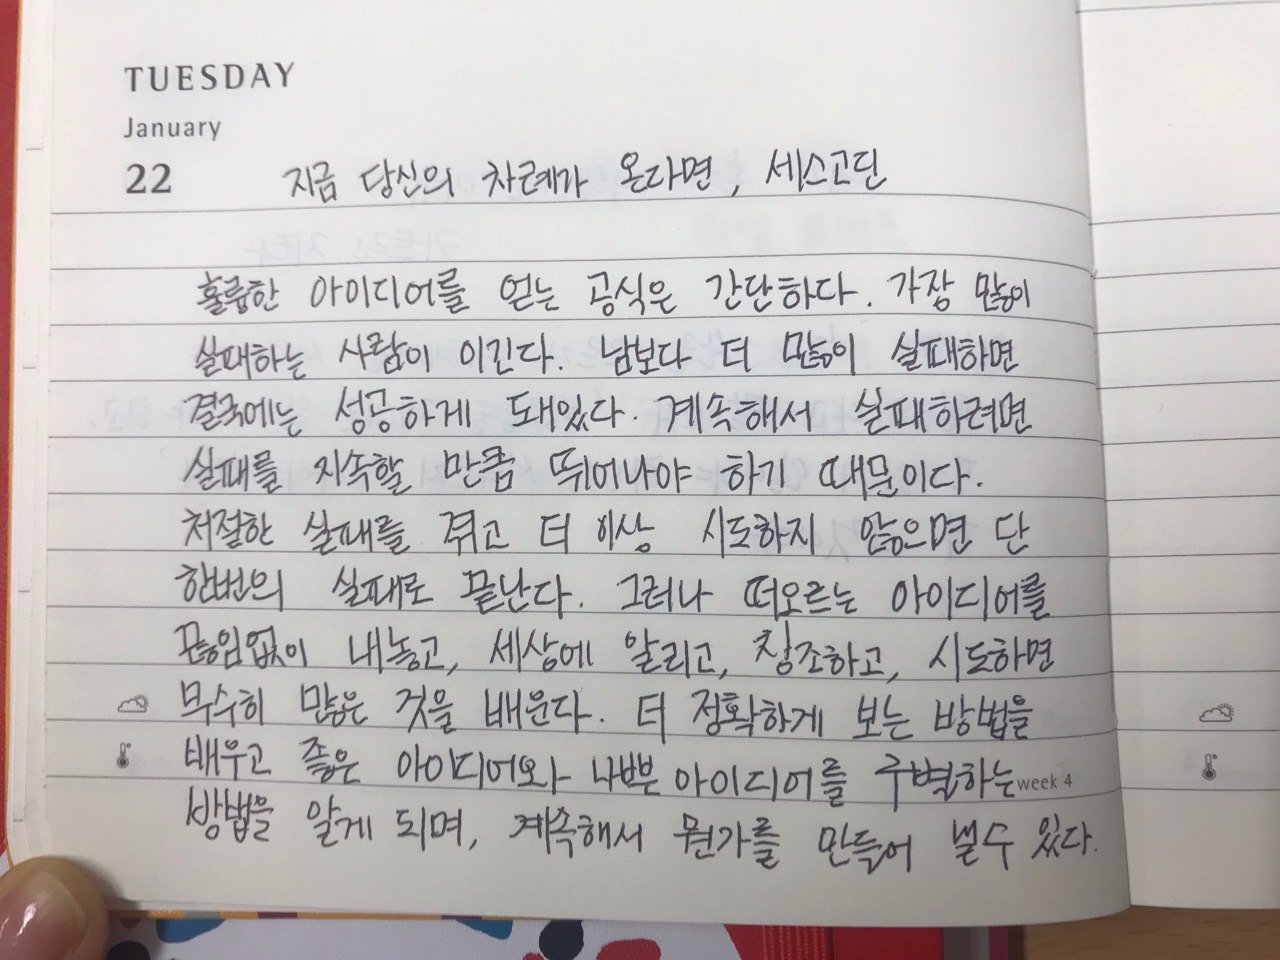 TUESDAY
January
22 지금 당신의 차례가 온다면, 세스고딘
훌륭한 아이디어를 얻는 공식은 간단하다. 가장 많이
실패하는 사람이 이긴다. 남보다 더 많이 실패하면
결국에는 성공하게 돼있다. 계속해서 실패하려면
실패를 지속할 만큼 뛰어나야 하기 때문이다.
처절한 실패를 겪고 더 이상 시도하지 않으면 단
한번의 실패로 끝난다. 그러나 떠오르는 아이디어를
끊임없이 내놓고, 세상에 알리고, 창조하고, 시도하면
무수히 많은 것을 배운다. 더 정확하게 보는 방법을
배우고 좋은 아이디어와 나쁜 아이디어를 구별하는
week 4
방법을 알게 되며, 계속해서 뭔가를 만들어 낼수 있다.